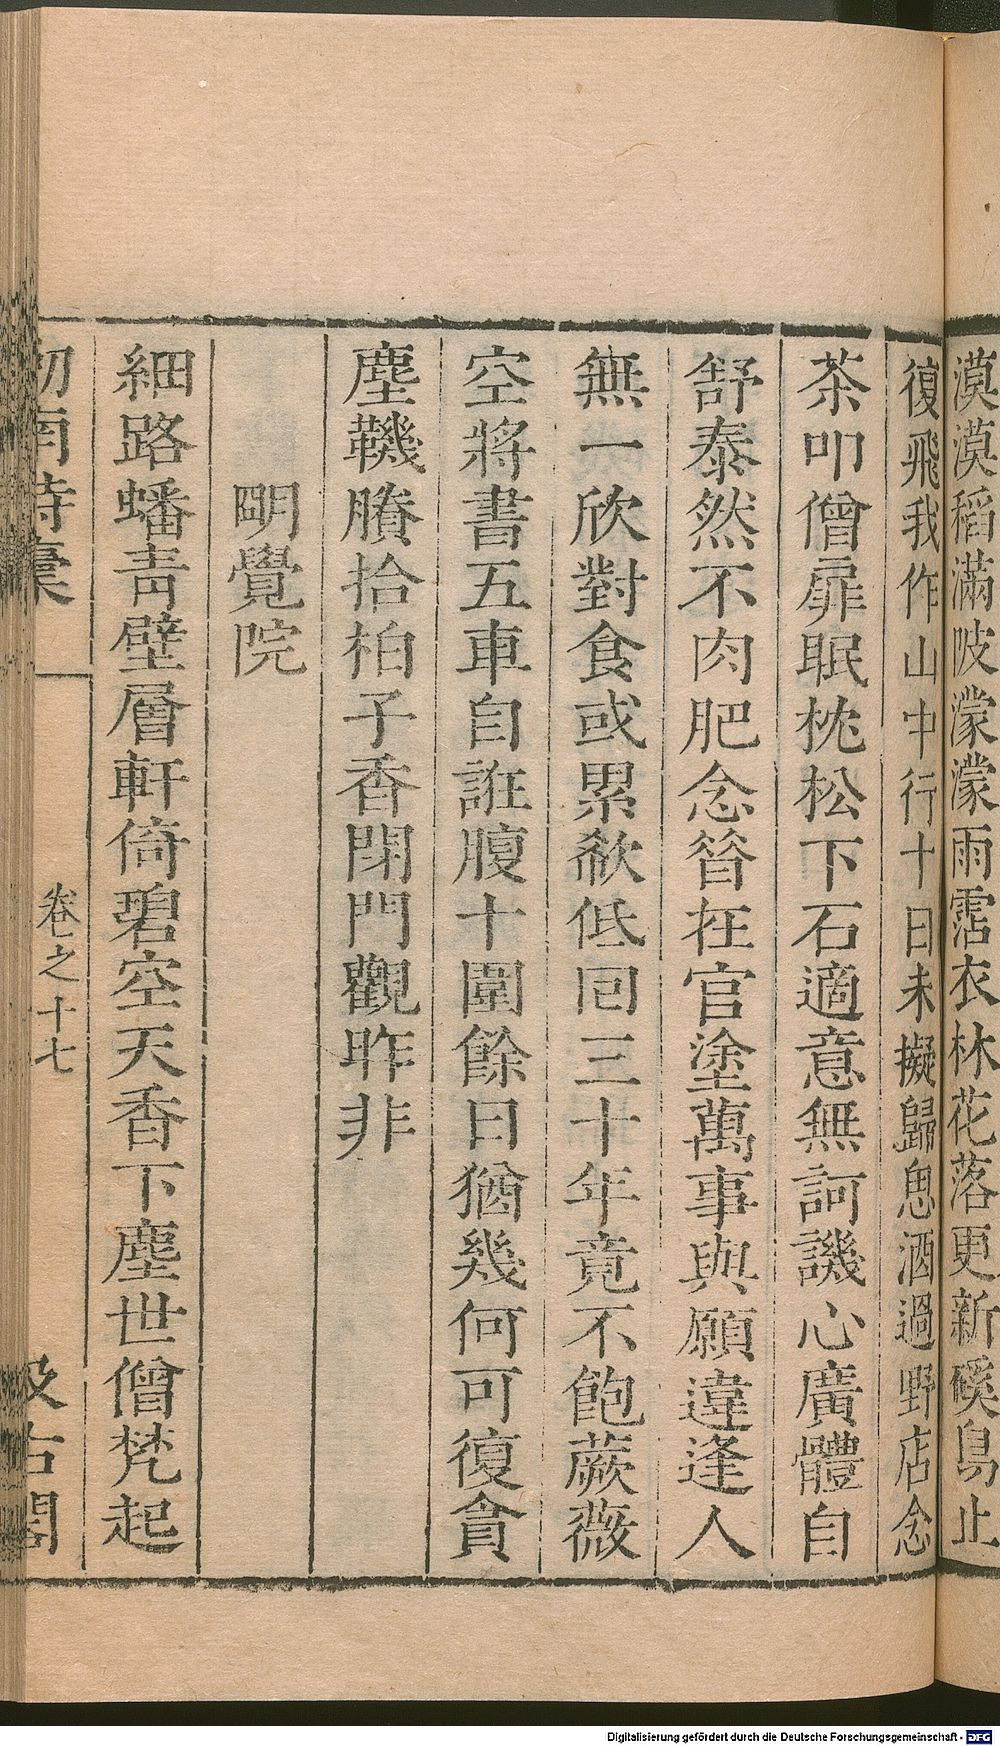 漠漠稻滿陂濛濛雨霑衣林花落更新磎鳥止
復飛我作山中行十日未擬歸思酒過野店念
茶叩僧扉眠枕松下石適意無訶譏心廣體自
舒泰然不肉肥念昝在官塗萬事與願違逢人
無一欣對食或累欷低囘三十年竟不飽蕨薇
空將書五車自誑腹十圍餘日猶幾何可復貪
塵鞿賸拾柏子香閉門觀昨非
朙覺院
細路蟠靑壁層軒倚碧空天香下塵世僧梵起
劒南詩稾
卷之十七
汲古閣
Digitalisierung gefördert durch die Deutsche Forschungsgemeinschaft - DFG